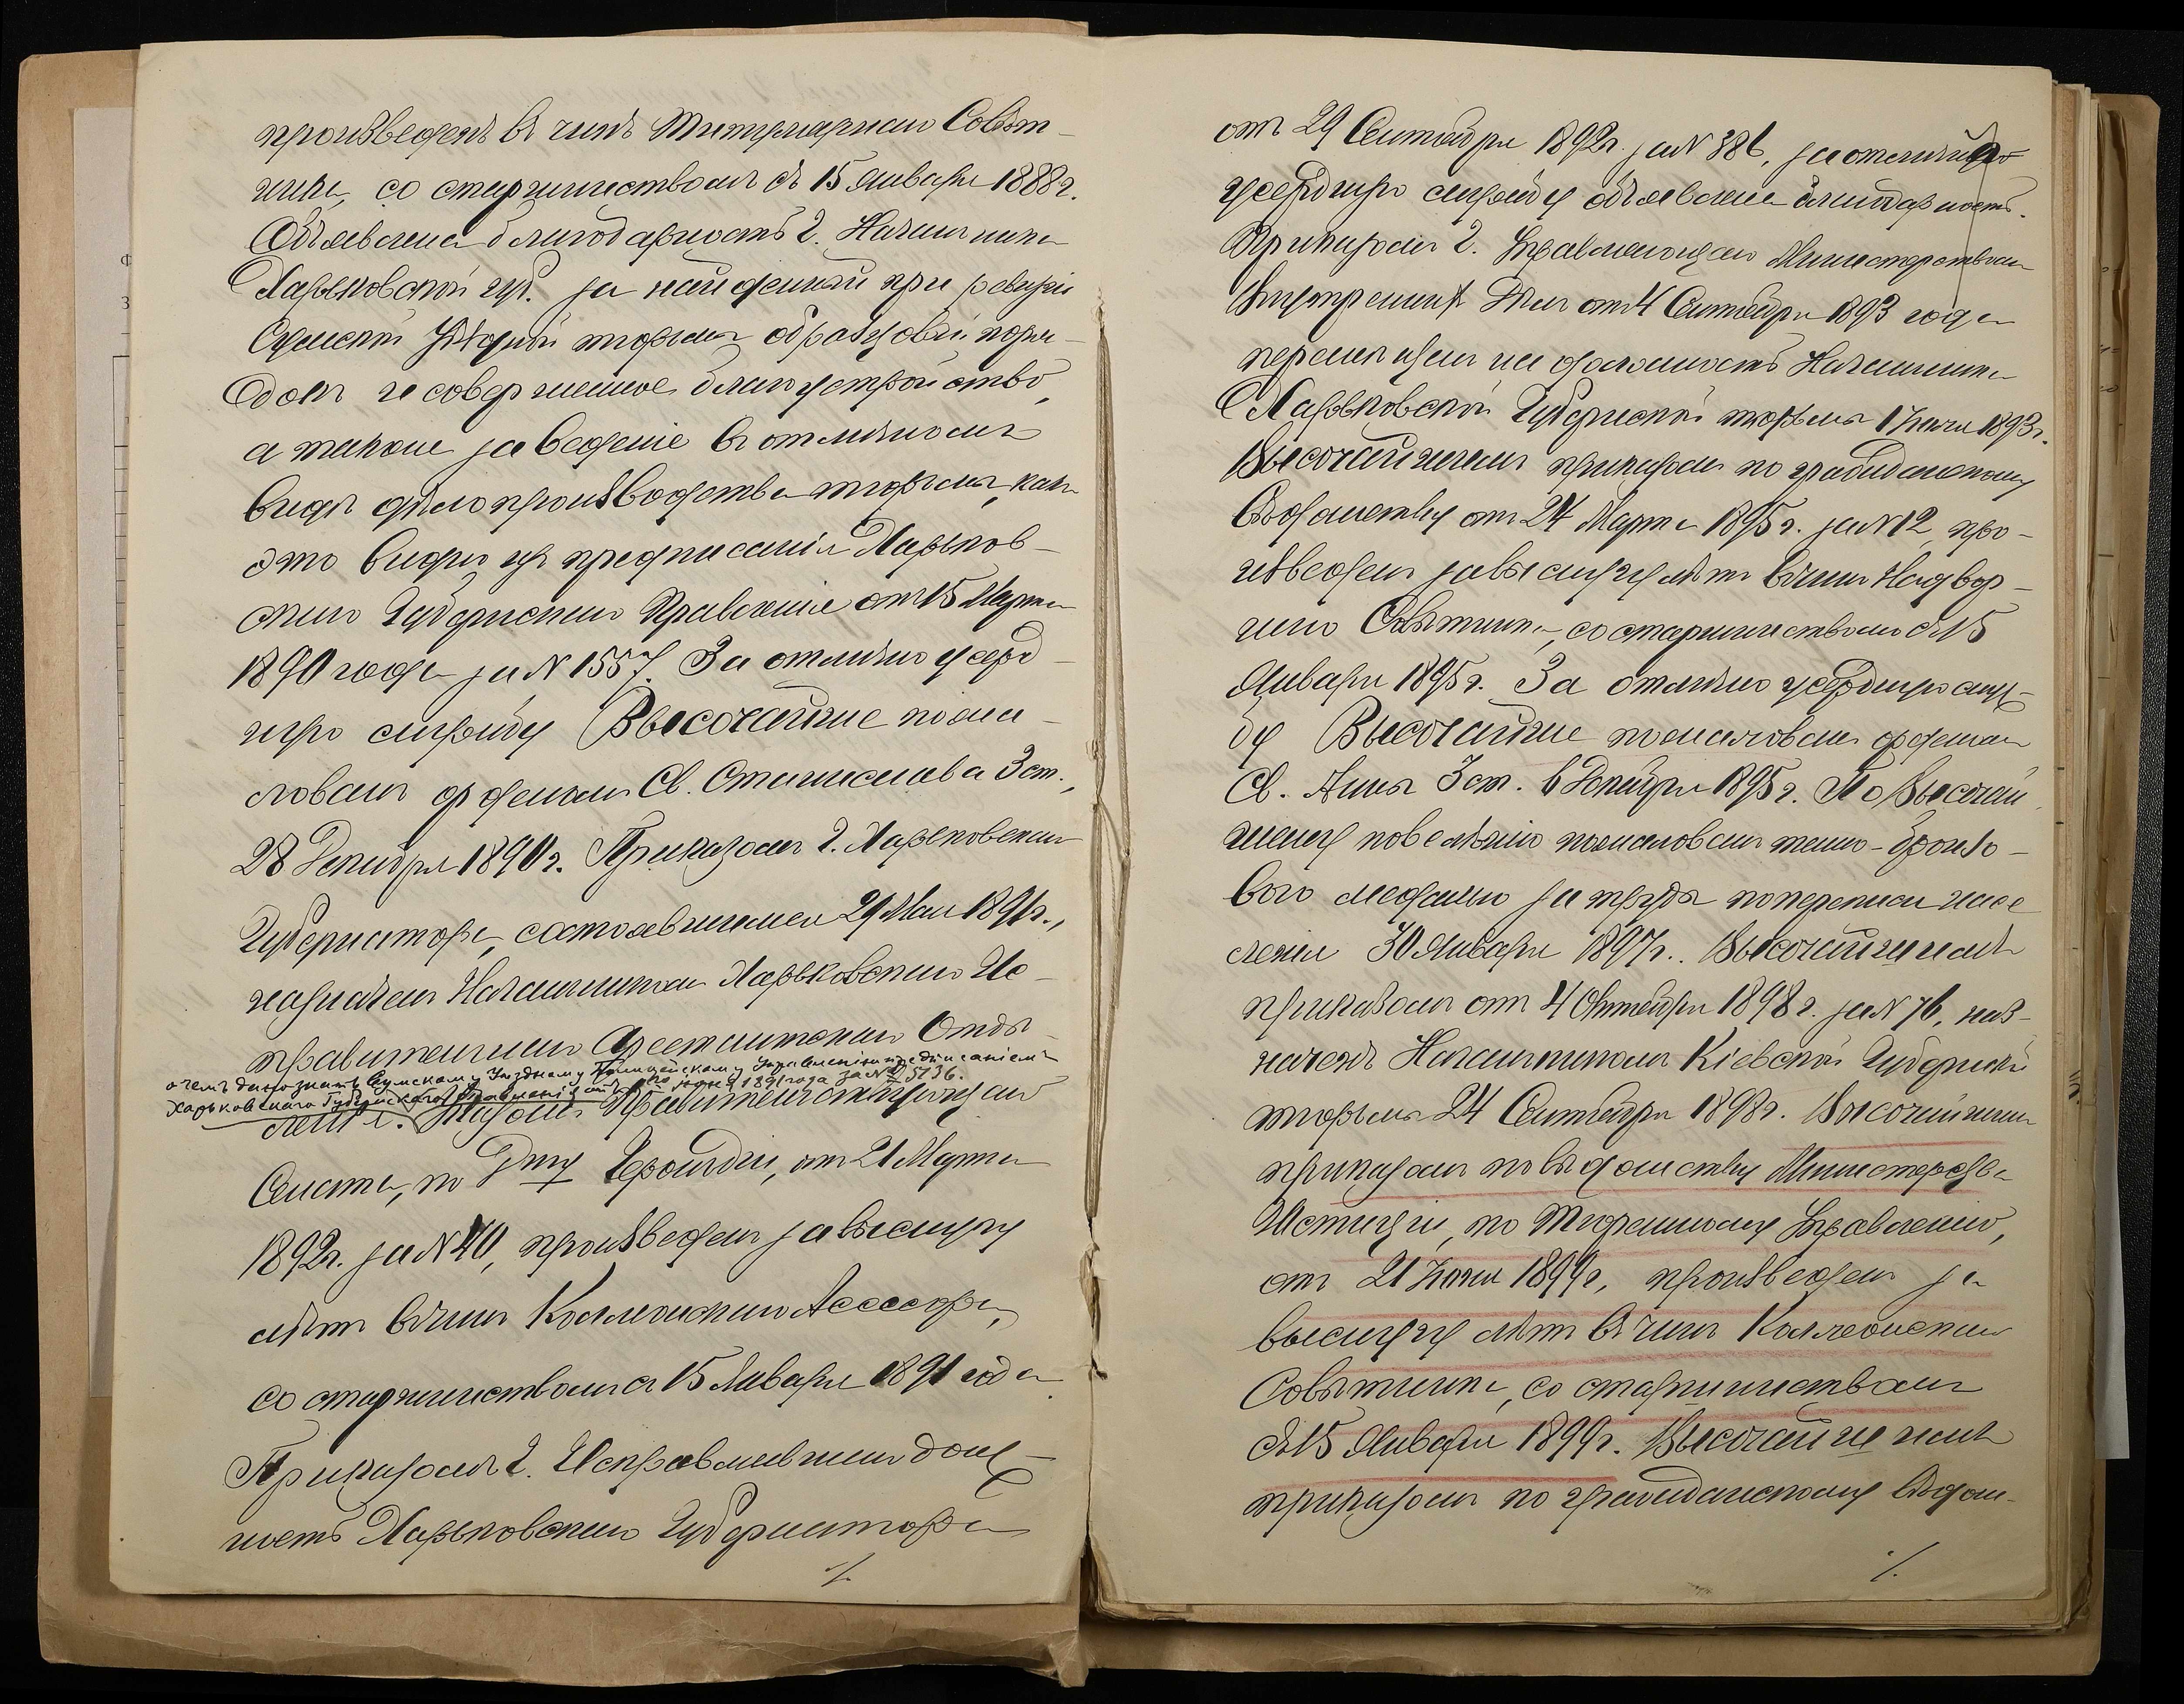 произведенъ въ чинъ Титулярнаго Совѣт-
ника, со старшинствомъ съ 15 Января 1888 г.
Объявлена благодарность Г. Начальника
Харьковской губ. за найденный при ревизіи
Сумской уѣздной тюрьмы образцовый поря-
докъ и совершенное благоустройство,
а также за веденіе въ отличномъ
видѣ дѣлопроизводства тюрьмы, какъ
это видно изъ предписанія Харьков-
скаго Губернскаго Правленія отъ 15 Марта
1890 года за № 1557. За отлично усерд-
ную службу Высочайше пожа-
лованъ орденомъ Св. Станислава 3 ст.,
28 Декабря 1890 г. Приказомъ Г. Харьковскаго
Губернатора, состоявшимся 29 Мая 1891 г.,
назначенъ Начальникомъ Харьковскаго Ис-
правительнаго Арестантскаго Отдѣ-
о чемъ дано знать Сумскому Уѣздному Полицейскому Управленію предписаніемъ
Харьковскаго Губернскаго Правленія отъ Іюня 1891 года за № 5736.
ленія. Указомъ Правительствующаго
Сената, по Д-ту Герольдіи, отъ 21 Марта
1892 г. за № 40, произведенъ за выслугу
лѣтъ въ чинъ Коллежскаго Ассесора,
со старшинствомъ съ 15 Января 1891 года.
Приказомъ Г. Исправлявшаго долж-
ность Харьковскаго Губернатора
%
отъ 29 Сентября 1892 г. за № 386, за отлично
усердную службу объявлена благодарность.
Приказомъ Г. Управляющаго Министерствомъ
Внутреннихъ Дѣлъ отъ 4 Сентября 1893 года
перемѣщенъ на должность Начальника
Харьковской Губернской тюрьмы 1 Іюля 1893 г.
Высочайшимъ приказомъ по гражданскому
вѣдомству отъ 24 Марта 1895 г. за № 12, про-
изведенъ за выслугу лѣтъ въ чинъ Надвор-
наго Совѣтника, со старшинствомъ съ 15
Января 1895 г. За отлично усердную служ-
бу Высочайше пожалованъ орденомъ
Св. Анны 3 ст. 6 Декабря 1895 г. По Высочай-
шему повелѣнію пожалованъ темно-бронзо-
вою медалью за труды по переписи насе
ленія 30 Января 1897 г. Высочайшимъ
приказомъ отъ 4 Октября 1898 г. за № 76, наз-
наченъ Начальникомъ Кіевской Губернской
тюрьмы 24 Сентября 1898 г. Высочайшимъ
приказомъ по вѣдомству Министерства
Юстиціи, по Тюремному Управленію,
отъ 21 Іюня 1899 г., произведенъ за
выслугу лѣтъ въ чинъ Коллежскаго
Совѣтника, со старшинствомъ
съ 15 Января 1899 г. Высочайшимъ
приказомъ по гражданскому вѣдом-
%